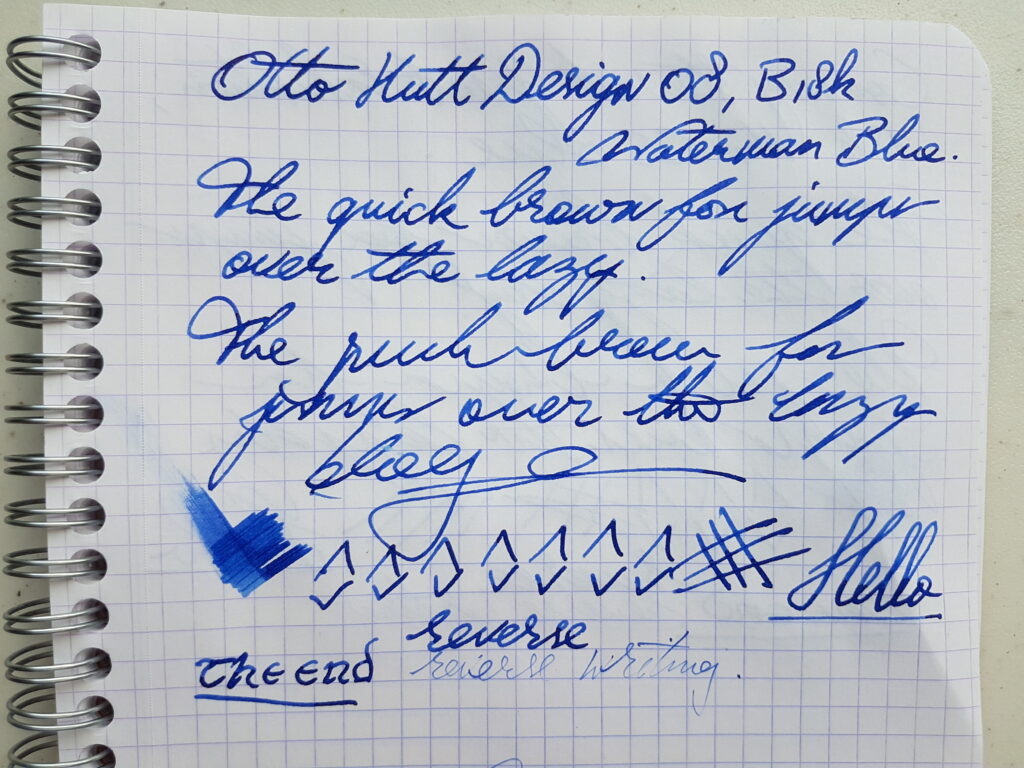 Otto Hutt Design 08, B, 18k
Waterman Blue.
The quick brown fox jumps
over the lazy.
The quick brown fox
jumps over the lazy
dog
Hello
reverse
The End reverse writing.